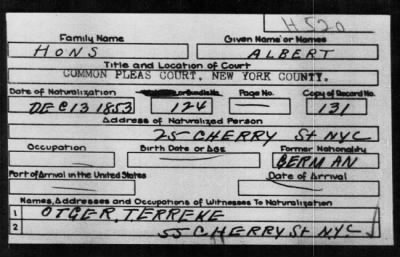 H 520
Family Name Given Name or Names
HONS ALBERT
Title and Location of Court
COMMON PLEAS COURT, NEW YORK COUNTY.
Date of Naturalization or Bundle No. Page No. Copy of Record No.
DEC 13 1853 124 131
Address of Naturalized Person
25 CHERRY St NYC
Occupation Birth Date or Age Former Nationality
BERMAN
Port of Arrival in the United States Date of Arrival
Names, Addresses and Occupations of Witnesses To Naturalization
1 OTGER, TERREKE
2 55 CHERRY St N.Y.C